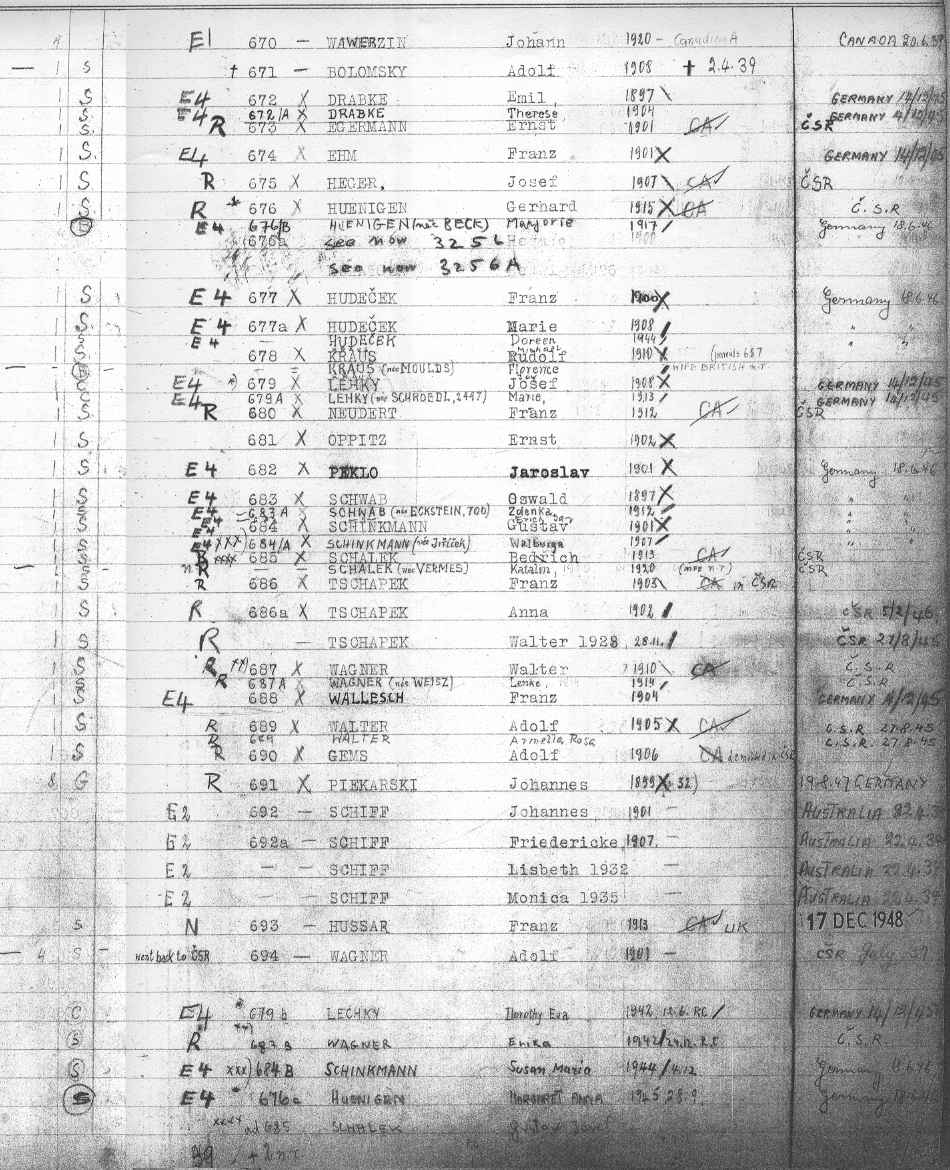 E1 670 — WAWERZIN Johann 1920 - Canadian A CANADA 20.6.39
— 1 S † 671 — BOLOMSKY Adolf 1908 † 2.4.39
1 S E4 672 X DRABKE Emil 1897 \ GERMANY
1 S E4 672/A X DRABKE Therese 1904 GERMANY
1 S R 673 X EGERMANN Ernst 1901 CA ČSR
1 S E4 674 X EHM Franz 1901 X GERMANY 14/12/45
1 S R 675 X HEGER, Josef 1907 \ CA ČSR
1 S R * 676 X HUENIGEN Gerhard 1915 X CA Č.S.R
E4 676/B HUENIGEN (née BECK) Marjorie 1917 / Germany 18.6.46
676a see now 3256
see now 3256A
S E4 677 X HUDEČEK Franz 1900 X Germany 18.6.46
S E4 677a X HUDEČEK Marie 1908 / " "
S E4 — HUDEČEK Doreen 1944 / " "
1 S 678 X KRAUS Rudolf 1910 X
— - = KRAUS (née MOULDS) Florence WIFE BRITISH
E4 *) 679 X LEHKY Josef 1908 X GERMANY 14/12/45
E4 679A X LEHKY (née SCHROEDL, 2447) Marie, 1913 / GERMANY 14/12/45
1 S R 680 X NEUDERT Franz 1912 CA ČSR
1 S 681 X OPPITZ Ernst 1902 X
1 S E4 682 X PEKLO Jaroslav 1901 X Germany 18.6.46
1 S E4 683 X SCHWAB Oswald 1897 X "
1 S E4 683A X SCHWAB (née ECKSTEIN, 700) Zdenka, 1912 / "
1 S E4 684 X SCHINKMANN Gustav 1901 X "
1 S E4 xxx) 684/A X SCHINKMANN (née Jiříček) Walburga 1907 / " "
1 S R xxxx 685 X SCHALEK Bedrich 1913 CA ČSR
— 1 S R — SCHALEK (née VERMES) Katalin, 1920 ČSR
1 S R 686 X TSCHAPEK Franz 1903 \ CA in ČSR
1 S R 686a X TSCHAPEK Anna 1902 / ČSR 5/2/46
1 S R — TSCHAPEK Walter 1928, 28.11. / ČSR 27/8/45
1 S R xx) 687 X WAGNER Walter 1910 \ CA Č.S.R
1 S R 687A X WAGNER (née WEISZ) 1914 / Č.S.R
1 S E4 688 X WALLESCH Franz 1904 GERMANY
1 S R 689 X WALTER Adolf 1905 X CA Č.S.R. 27.8.45
R 689 WALTER Armella Rosa Č.S.R. 27.8.45
1 S R 690 X GEMS Adolf 1906 CA
8 G R 691 X PIEKARSKI Johannes 1899 X 32) 19.8.47 GERMANY
E2 692 — SCHIFF Johannes 1901 — AUSTRALIA 22.4.39
E2 692a — SCHIFF Friedericke, 1907. — AUSTRALIA 22.4.39
E2 — — SCHIFF Lisbeth 1932 — AUSTRALIA 22.4.39
E2 — SCHIFF Monica 1935 — AUSTRALIA 22.4.39
S N 693 — HUSSAR Franz 1913 CA UK 17 DEC 1948
— 4 S - went back to ČSR 694 — WAGNER Adolf 1901 — ČSR July 39
C E4 * 679 b LECHKY Dorothy Eva 1942, 12.6. / GERMANY 14/12/45
S R xx) 687 B WAGNER Erika 1942/ Č.S.R.
S E4 xxx) 684B SCHINKMANN Susan Maria 1944 / 4.12 Germany 18.6.46
S E4 * 676c HUENIGEN MARGARET ANNA 1945 28.9. Germany 18.6.46
xxxx ad 685 SCHALEK Gustav Josef